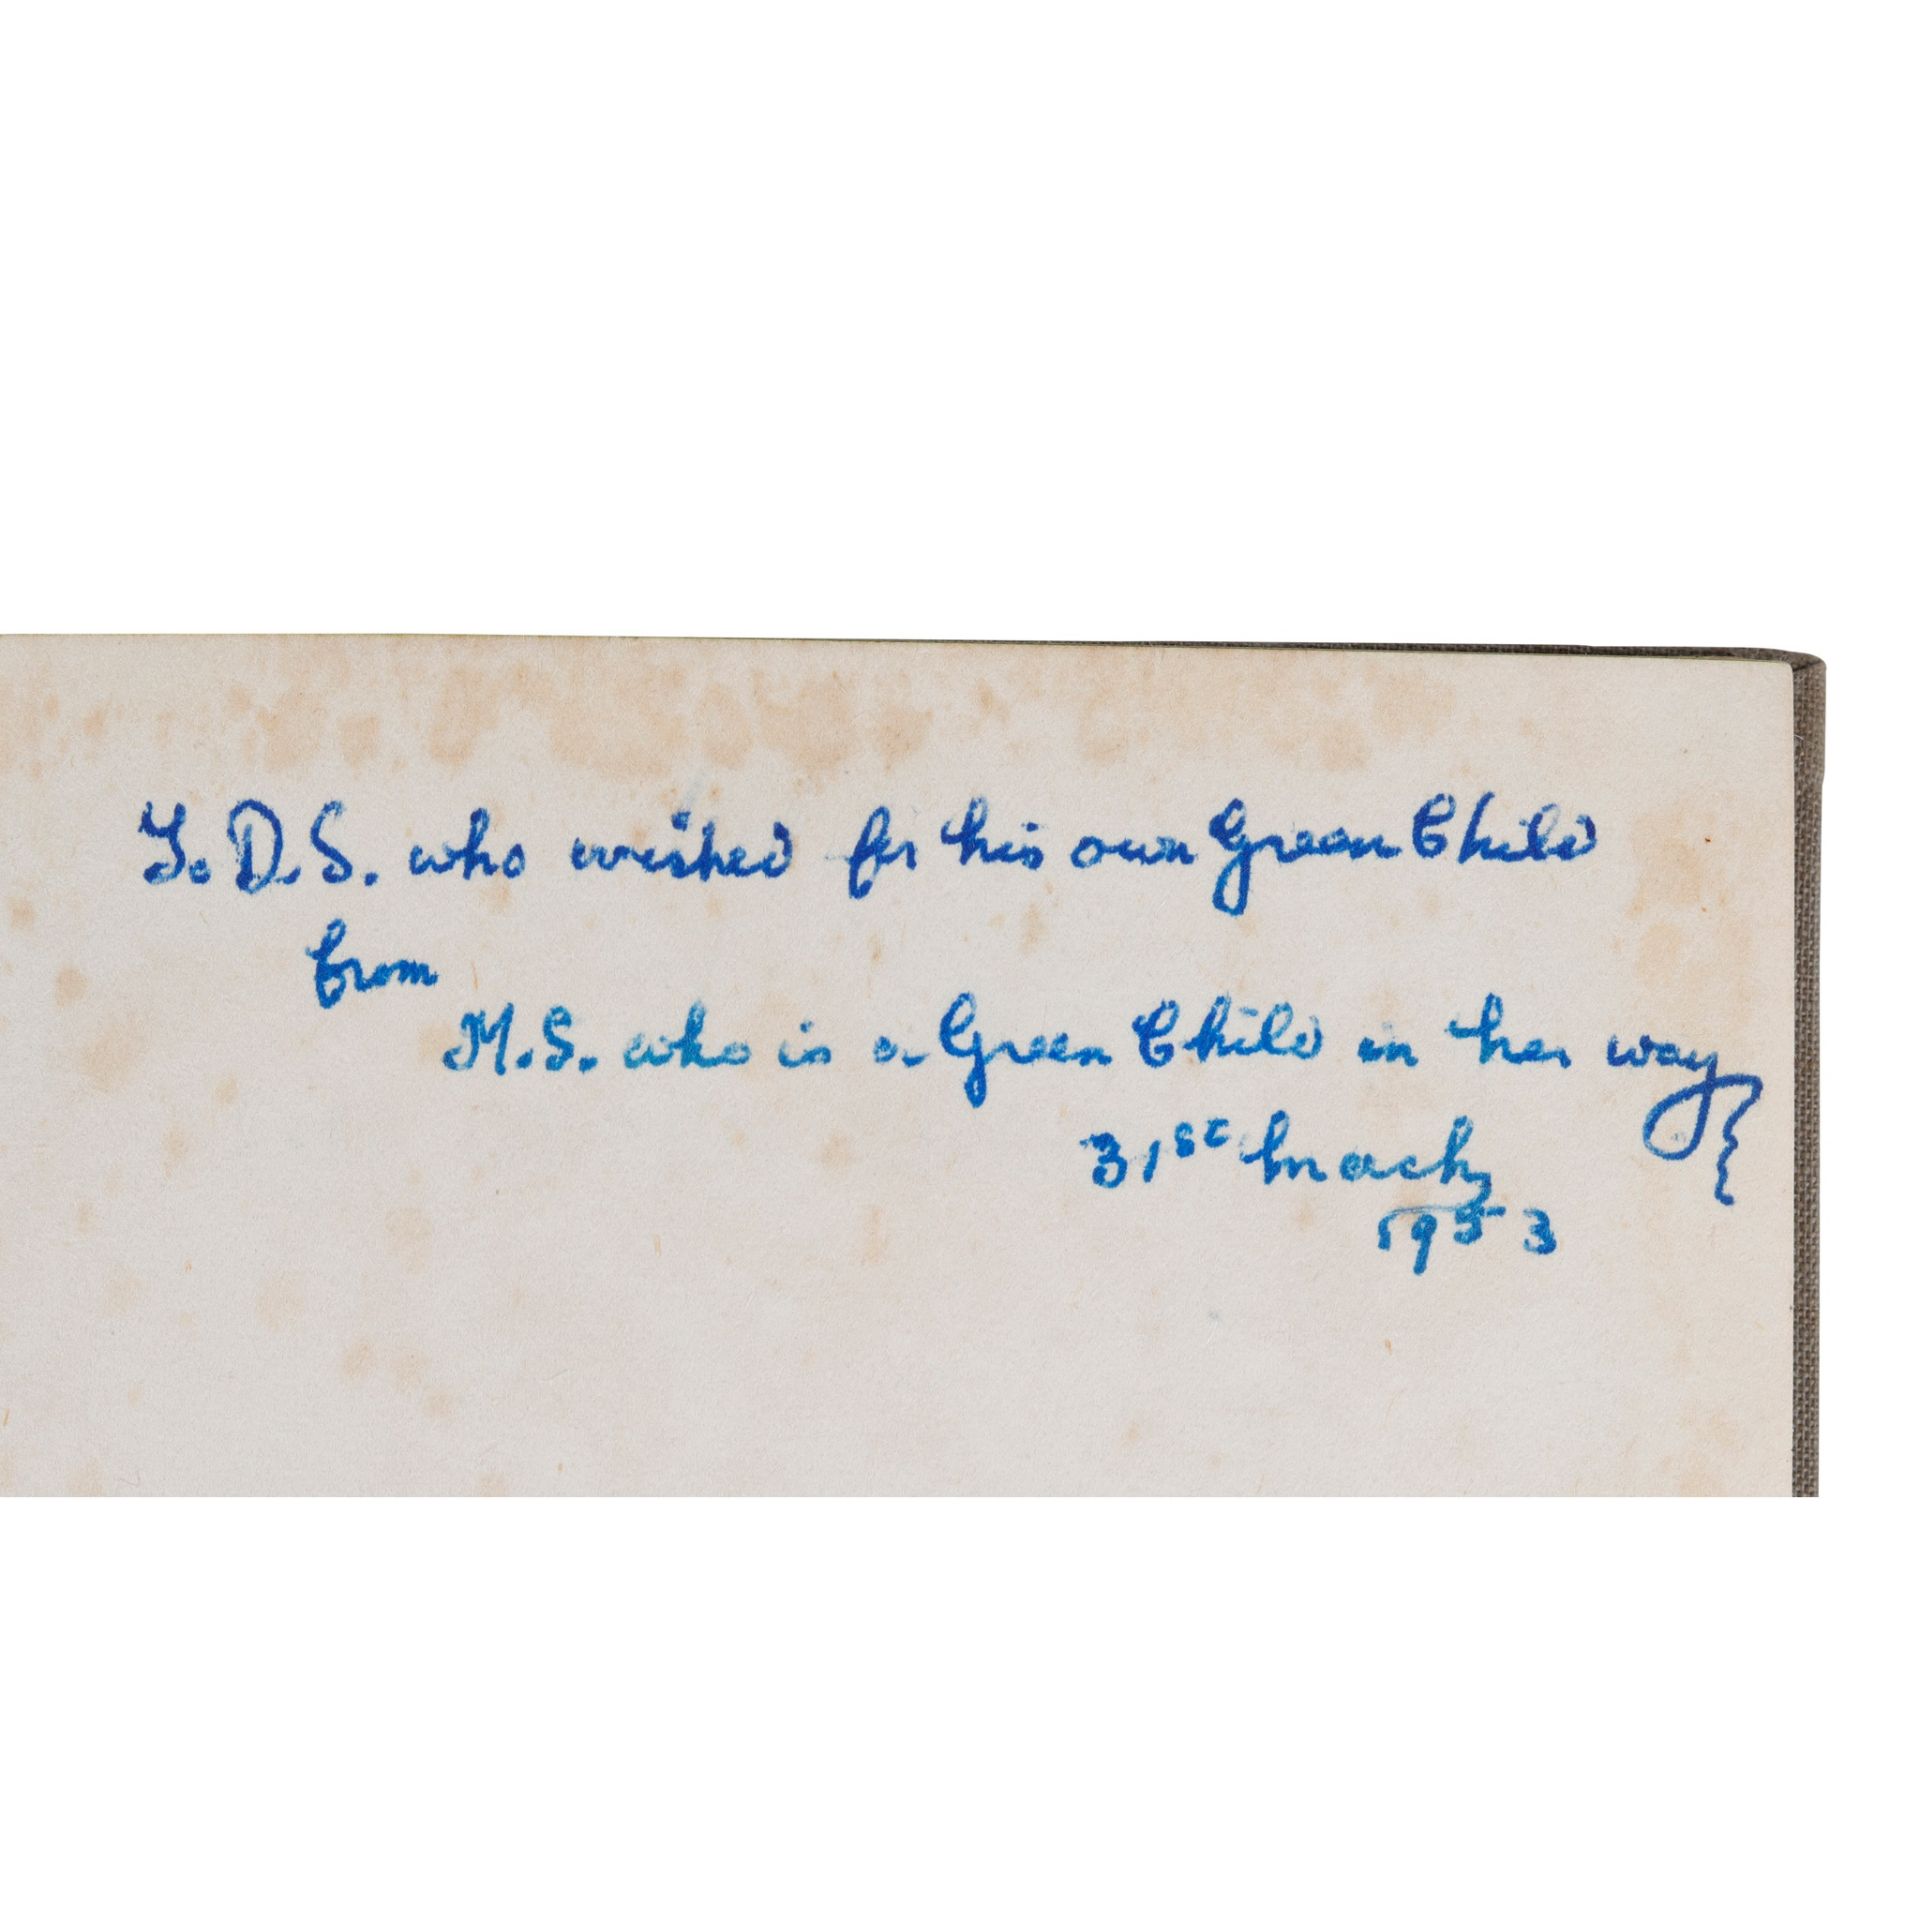 To D.S. who wished for his own Green Child
from
M.S. who is a Green Child in her way
31st March
1953